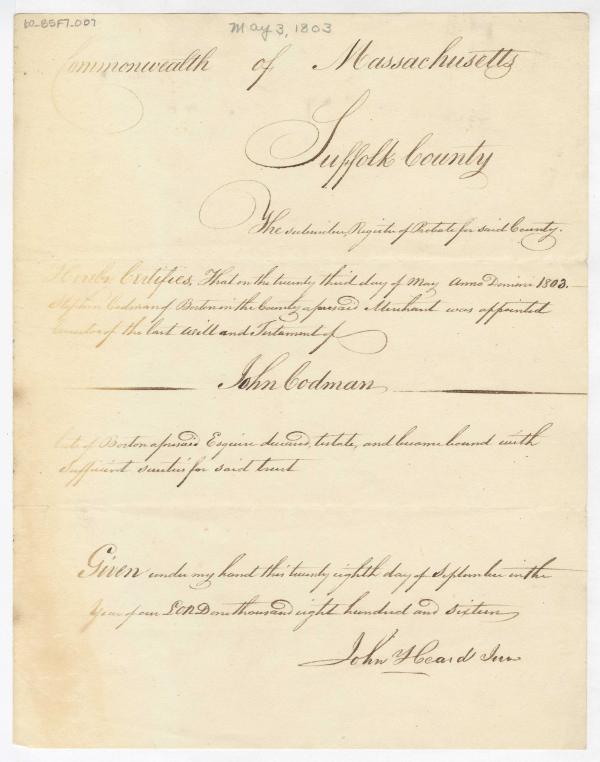 60-85F7-007
May 3, 1803
Commonwealth of Massachusetts
Suffolk County
The subscriber, Register of Probate for said County.
Hereby Certifies, That on the twenty third day of May Anno Domini 1803.
Stephen Codman of Boston in the County aforesaid Merchant was appointed
Executor of the last Will and Testament of
John Codman
late of Boston aforesaid Esquire deceased, testate, and became bound with
Sufficient sureties for said trust
Given under my hand this twenty eighth day of September in the
Year of our LORD one thousand eight hundred and sixteen
John Heard Jun